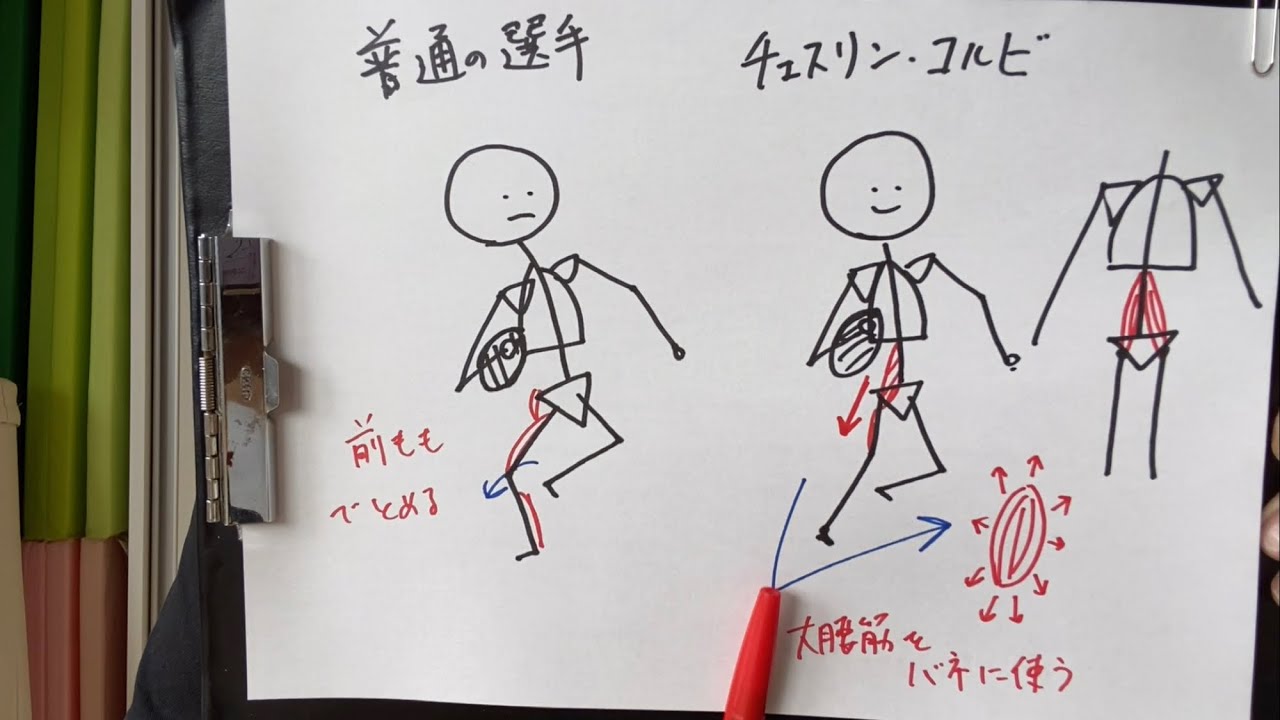 普通の選手
チェスリン・コルビ
前もも
でとめる
大腰筋を
バネに使う